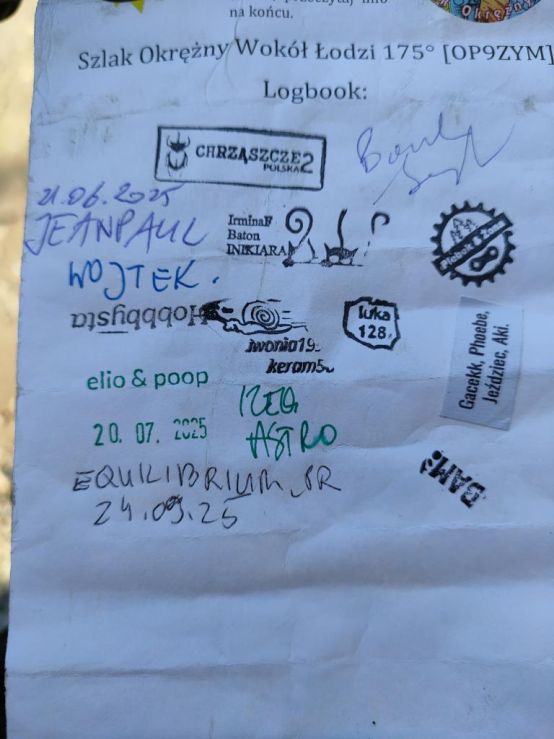 na końcu.
Szlak Okrężny Wokół Łodzi 175° [OP9ZYM]
Logbook:
CHRZĄSZCZE2
POLSKA
21.06.2025
JEANPAUL
IrminaF
Baton
INIKIARA
WOJTEK.
Hobbysta
luka
128
iwonia19
keram5
Gacekk, Phoebe,
Jeździec, Aki.
elio & poop
20. 07. 2025
IZEQ
ASTRO
BAMP
EQUILIBRIUM_SR
24.09.25